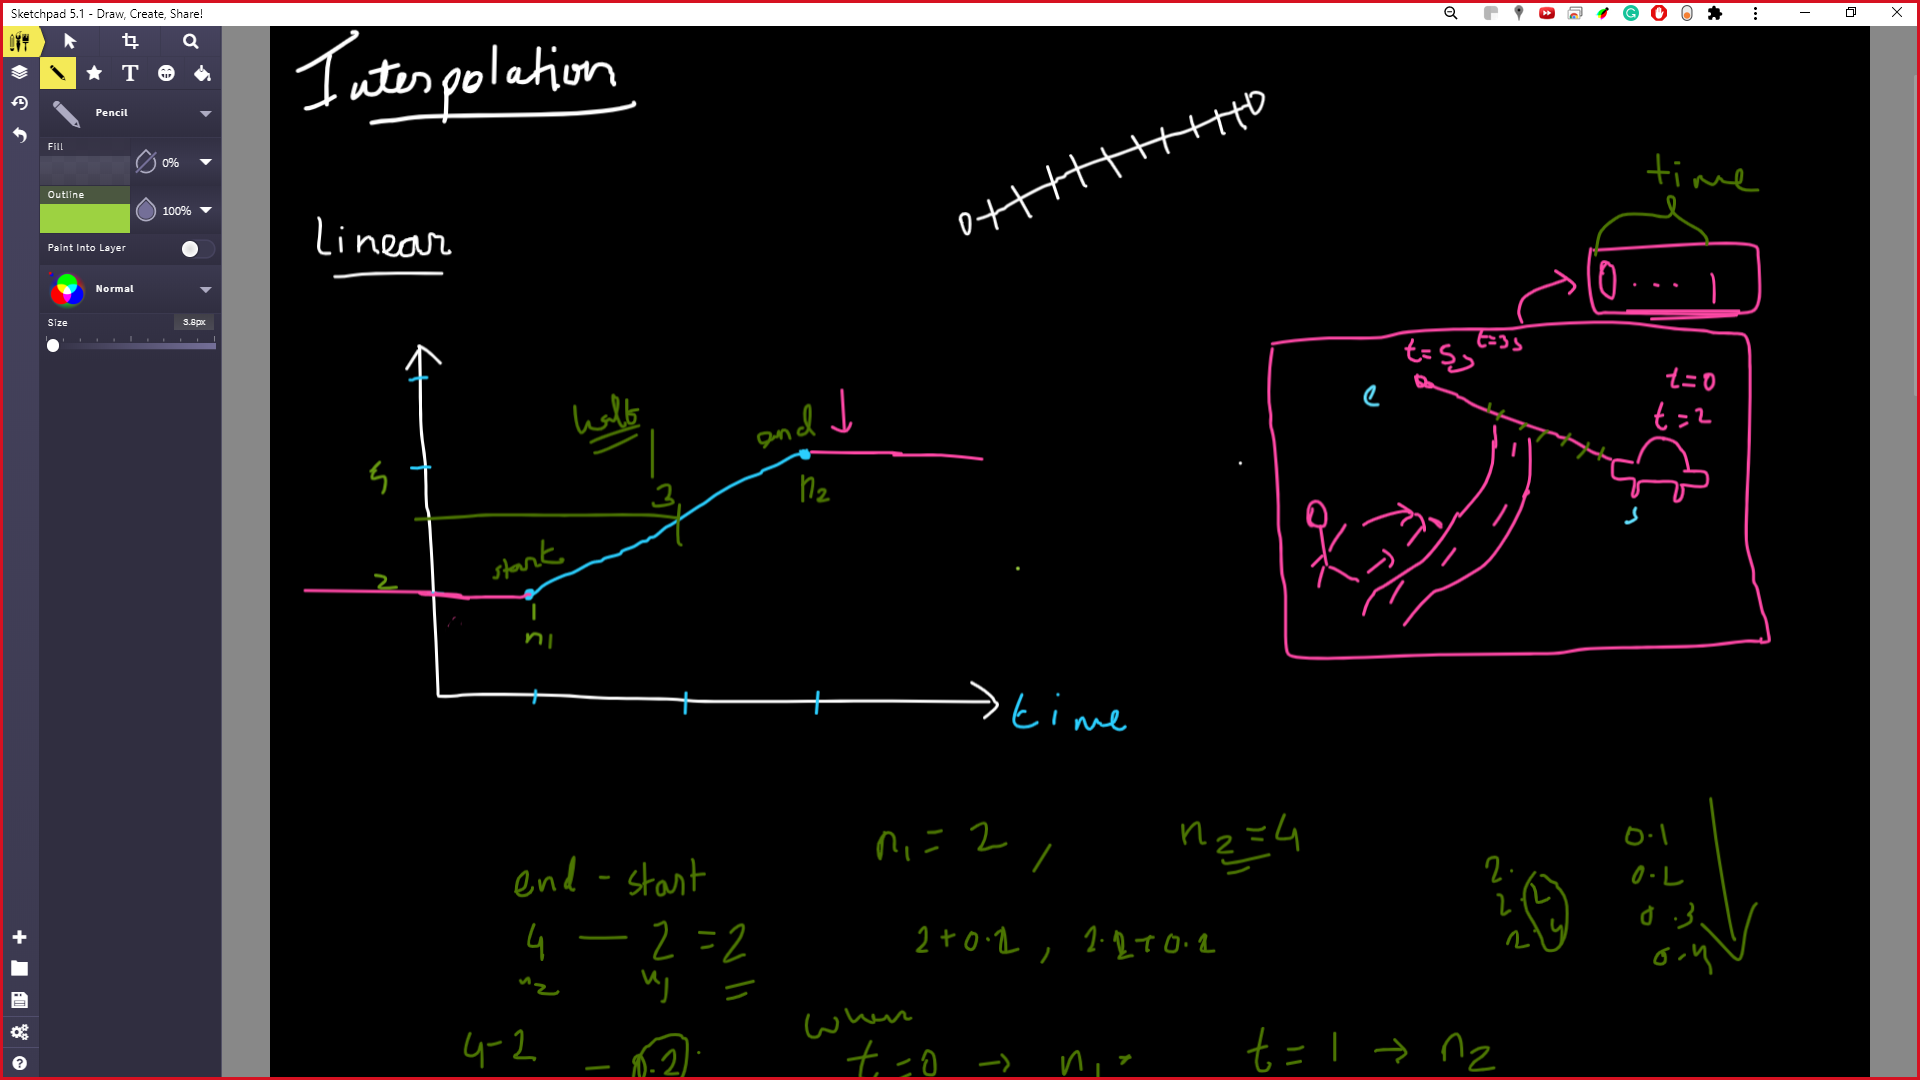 Sketchpad 5.1 - Draw, Create, Share!
Pencil
Fill
0%
Outline
100%
Paint Into Layer
Normal
Size
3.8px
Interpolation
Linear
time
0 ... 1
t=5s t=3s
t=0
t=2
e
s
halt
end
3
n2
start
2
n1
time
n1 = 2 , n2 = 4
end - start
4 — 2 = 2
n2 n1
2+0.2 , 2.2+0.2
2.
2.2
2.4
0.1
0.2
0.3
0.4
when
4-2 = 0.2
t=0 → n1
t = 1 → n2